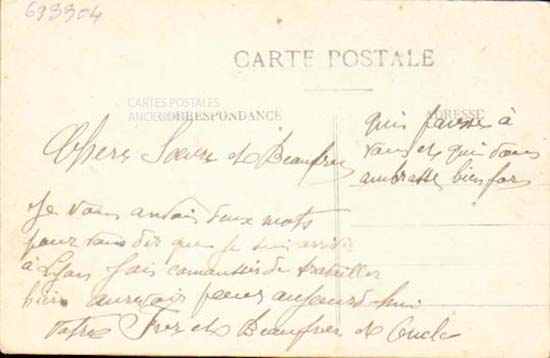 693304
CARTE POSTALE
CARTES POSTALES
ANCIENNES
CORRESPONDANCE
ADRESSE
Chere Soeur et Beaufrer
Je vous anvois deux mots
pour vous dir que je suis arrivé
à Lyon jais comanssé de travailler
hier auresoir pour aujourd'hui
votre Frer et Beaufrer et Oncle
qui panse à
vous et qui vous
ambrasse bien for